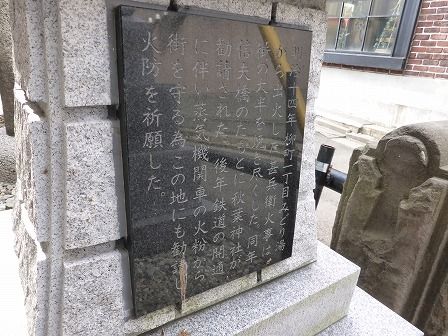 明治十四年 柳町一丁目みどり湯
から出火した甚兵衛火事は
福島の大半を焼き尽くした。同年
信夫橋のたもとに秋葉神社が
勧請された。後年 鉄道の開通
に伴い蒸気機関車の火粉から
街を守る為 この地にも勧請し
火防を祈願した。